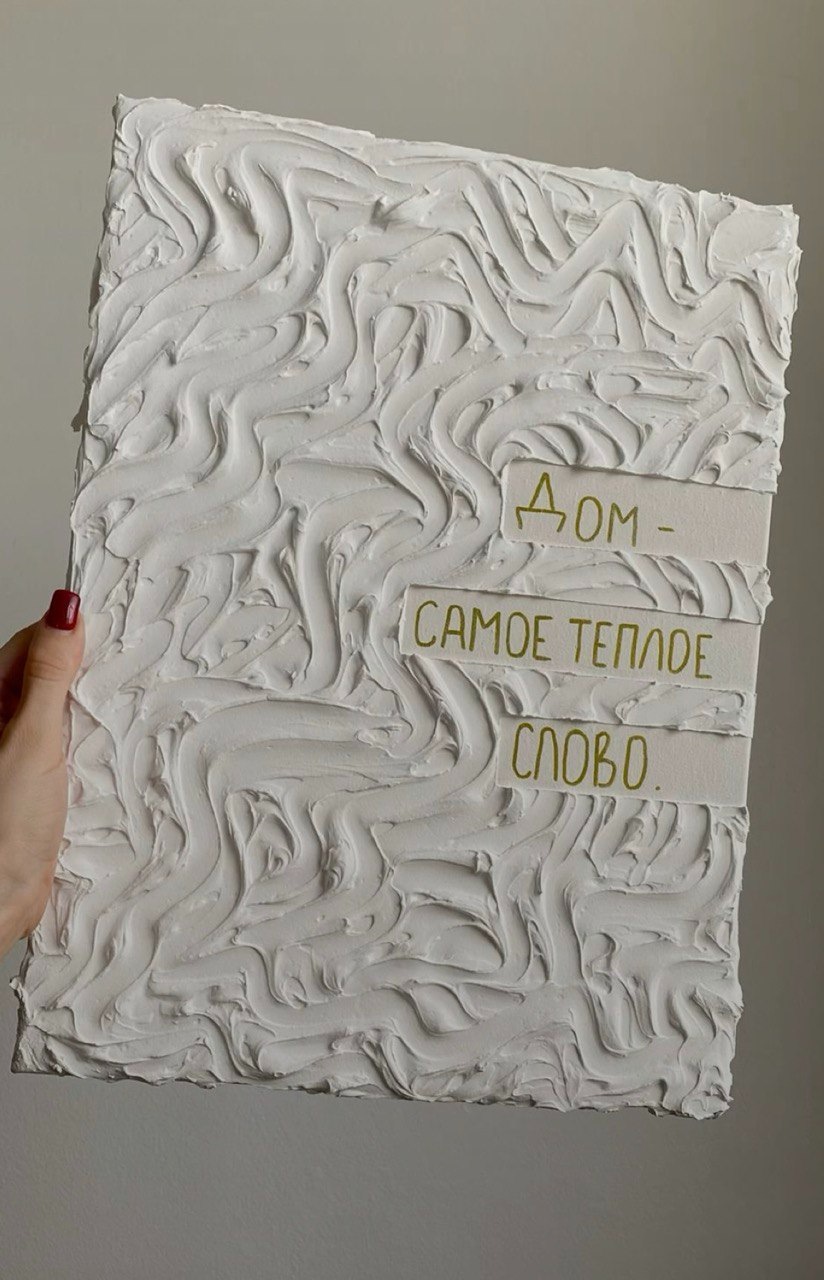 ДОМ -
САМОЕ ТЕПЛОЕ
СЛОВО.